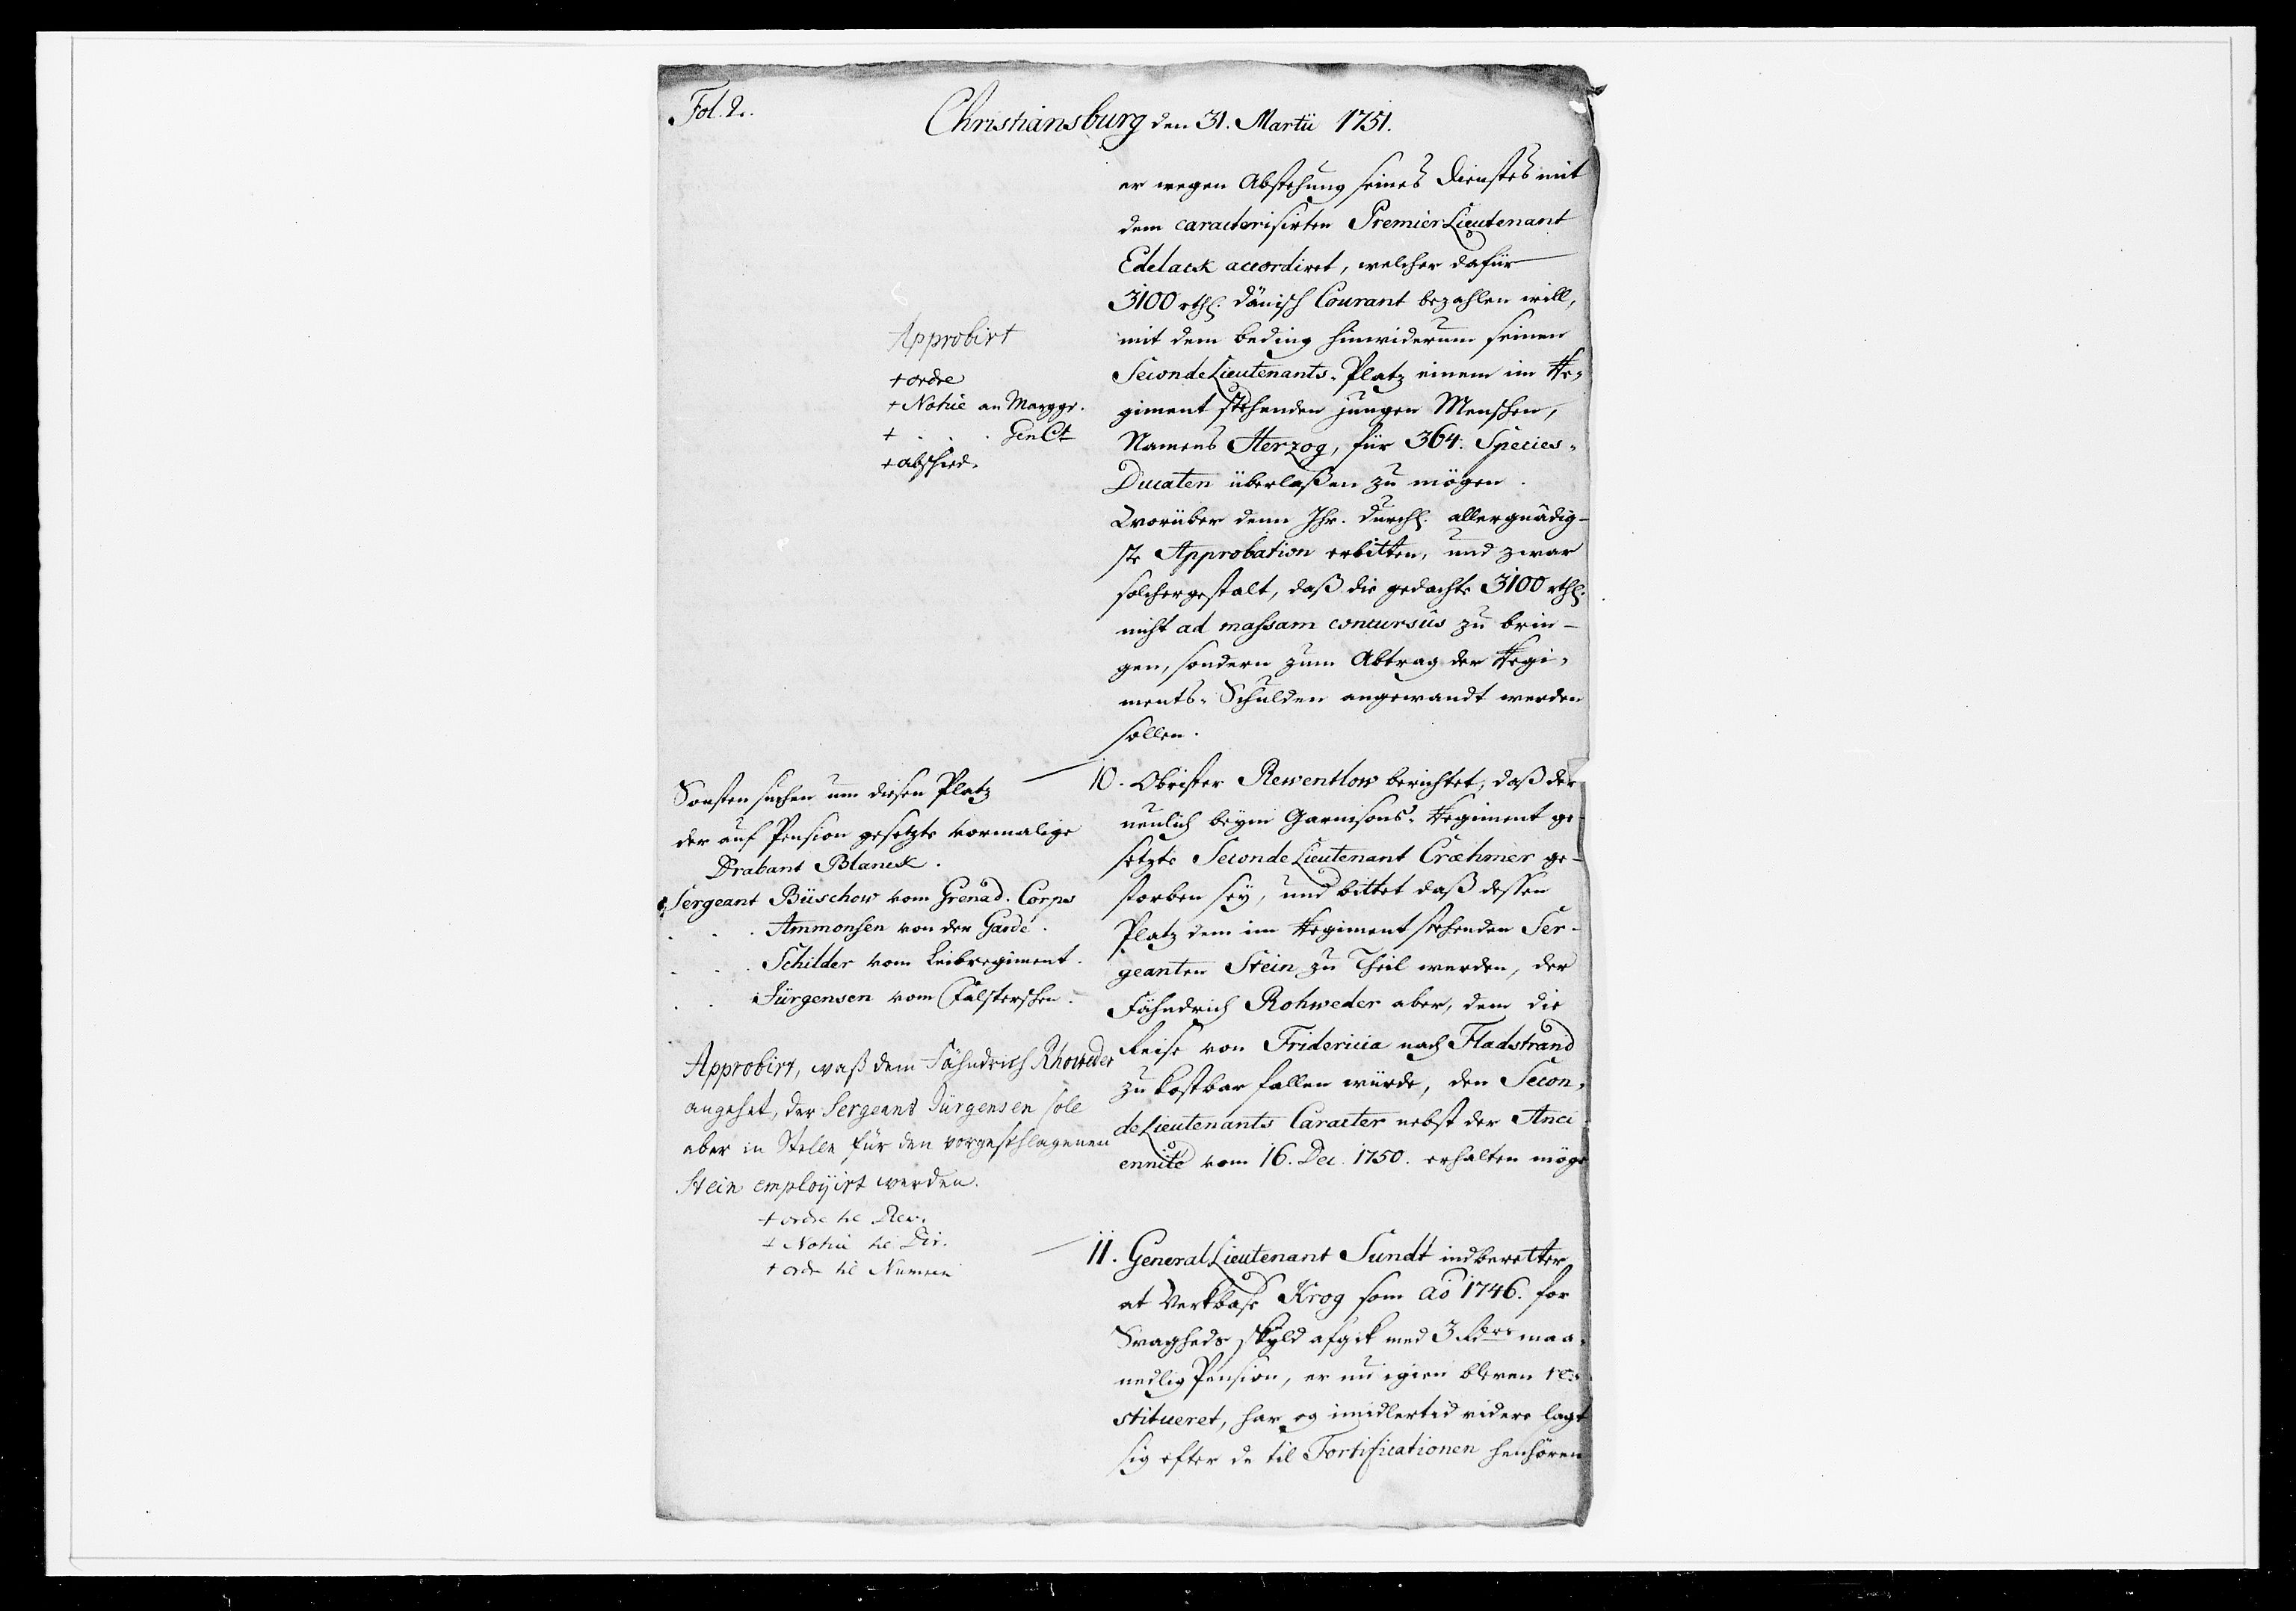 Fol. 2.
Christiansburg den 31. Martii 1751.
er wegen Abstehung seines Dienstes mit
dem caracterisirten Premier Lieutenant
Edelack accordiret, welcher dafür
3100 rthl. Dänisch Courant bezahlen will,
mit dem beding hinwiderum seinen
Seconde Lieutenants-Platz einem im Re-
giment stehenden jungen Menschen,
Namens Herzog, für 364. Species-
Ducaten überlaßen zu mögen.
Worüber denn Ihr. Durchl. allergnädig-
ste Approbation erbitten, und zwar
solchergestalt, daß die gedachte 3100 rthl.
nicht ad massam concursus zu brin-
gen, sondern zum Abtrag der Regi-
ments-Schulden angewandt werden
sollen.
Approbirt
+ ordre
+ Notice an Marggr.
+ . . . Gen Ct
+ abschied.
10. Obrister Rewentlow berichtet, daß der
neulich beym Garnisons-Regiment ge-
setzte Seconde Lieutenant Cræhmer ge-
storben sey, und bittet daß dessen
Platz dem im Regiment stehenden Ser-
geanten Stein zu Theil werden, der
Fähndrich Rohweder aber, dem die
Reise von Fridericia nach Fladstrand
zu kostbar fallen würde, den Secon-
de Lieutenants Caracter nebst der Anci-
ennité vom 16. Dec. 1750. erhalten möge
Sonsten suchen um diesen Platz
der auf Pension gesetzte vormalige
Drabant Blanck.
Sergeant Büschow vom Grenad. Corps
. . . Ammonsen von der Garde.
. . . Schilder vom Leibregiment.
. . Jürgensen vom Falsterschen.
Approbirt, waß dem Fähndrich Rhoweder
angehet, der Sergeant Jürgensen sole
aber in Stelle für den vorgeschlagenen
Stein employirt werden.
+ ordre til Rev.
+ Notice til Dir.
+ ordre til Numsen
11. General Lieutenant Sundt indberetter
at Verkbase Krog som Aō 1746. for
Svagheds skyld afgik med 3 Rdrs maa-
nedlig Pension, er nu igien bleven re-
stitueret, har og imidlertid videre lagt
sig efter de til Fortificationen henhören